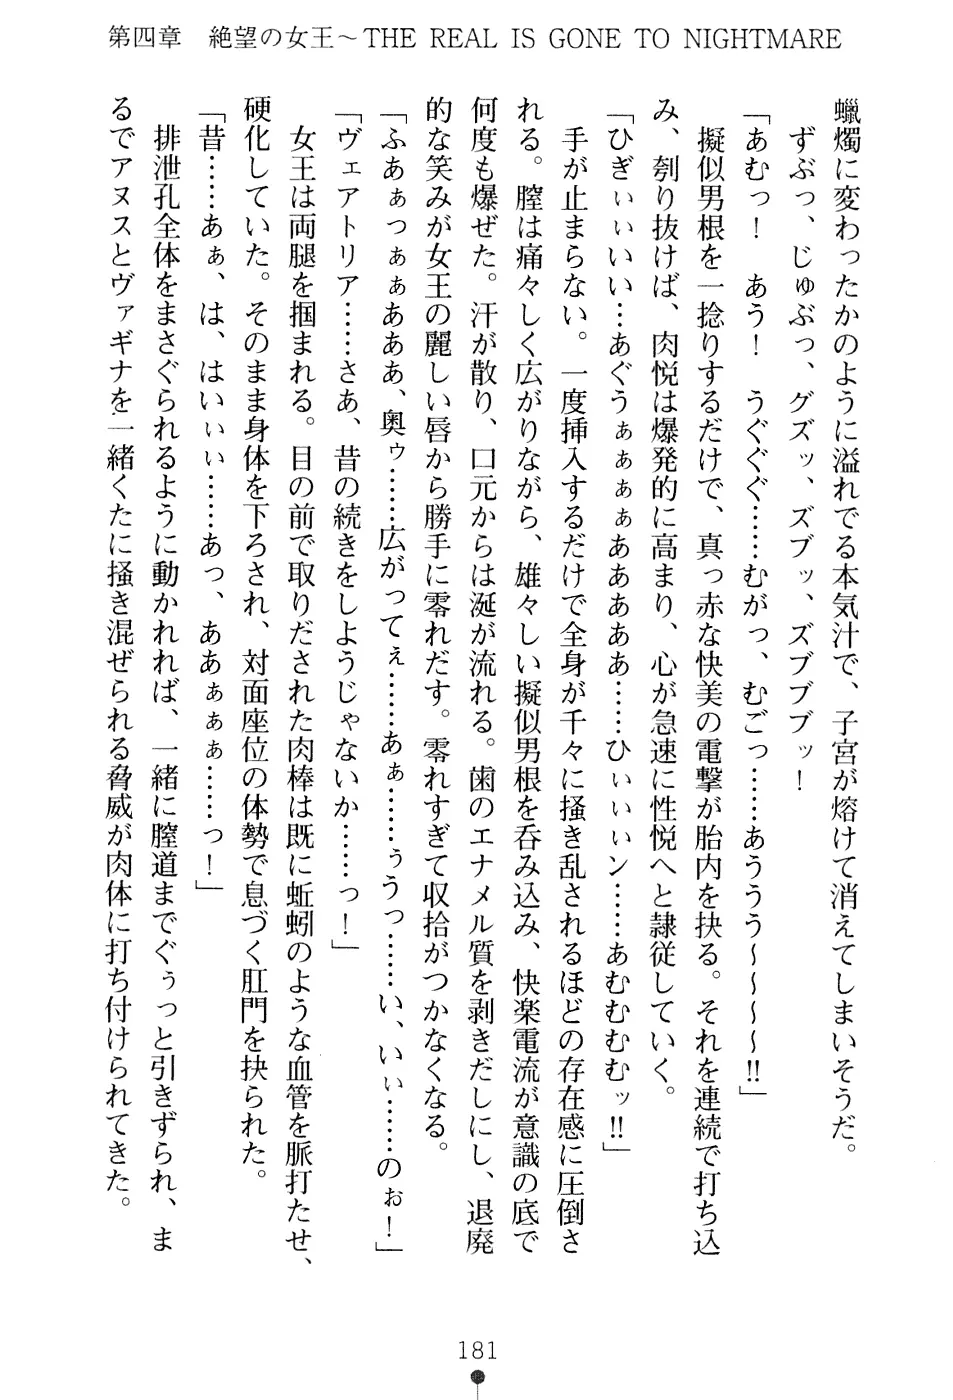 第四章　絶望の女王～THE REAL IS GONE TO NIGHTMARE
蠟燭に変わったかのように溢れでる本気汁で、子宮が熔けて消えてしまいそうだ。
ずぶっ、じゅぶっ、グズッ、ズブッ、ズブブブッ！
「あむっ！　あう！　うぐぐぐ……むがっ、むごっ……あううう～～～～!!」
擬似男根を一捻りするだけで、真っ赤な快美の電撃が胎内を抉る。それを連続で打ち込
み、刳り抜けば、肉悦は爆発的に高まり、心が急速に性悦へと隷従していく。
「ひぎぃぃいい…あぐうぁぁぁぁああああ……ひぃぃぃン……あむむむむッ!!」
手が止まらない。一度挿入するだけで全身が千々に掻き乱されるほどの存在感に圧倒さ
れる。膣は痛々しく広がりながら、雄々しい擬似男根を呑み込み、快楽電流が意識の底で
何度も爆ぜた。汗が散り、口元からは涎が流れる。歯のエナメル質を剥きだしにし、退廃
的な笑みが女王の麗しい唇から勝手に零れだす。零れすぎて収拾がつかなくなる。
「ふあぁっぁぁあああ、奥ゥ……広がってぇ……あぁ……ぅうっ……い、いぃ……のぉ！」
「ヴェアトリア……さあ、昔の続きをしようじゃないか……っ！」
女王は両腿を掴まれる。目の前で取りだされた肉棒は既に蚯蚓のような血管を脈打たせ、
硬化していた。そのまま身体を下ろされ、対面座位の体勢で息づく肛門を抉られた。
「昔……あぁ、は、はいぃぃ……あっ、ああぁぁぁ……っ！」
排泄孔全体をまさぐられるように動かれれば、一緒に膣道までぐぅっと引きずられ、ま
るでアヌスとヴァギナを一緒くたに掻き混ぜられる脅威が肉体に打ち付けられてきた。
181